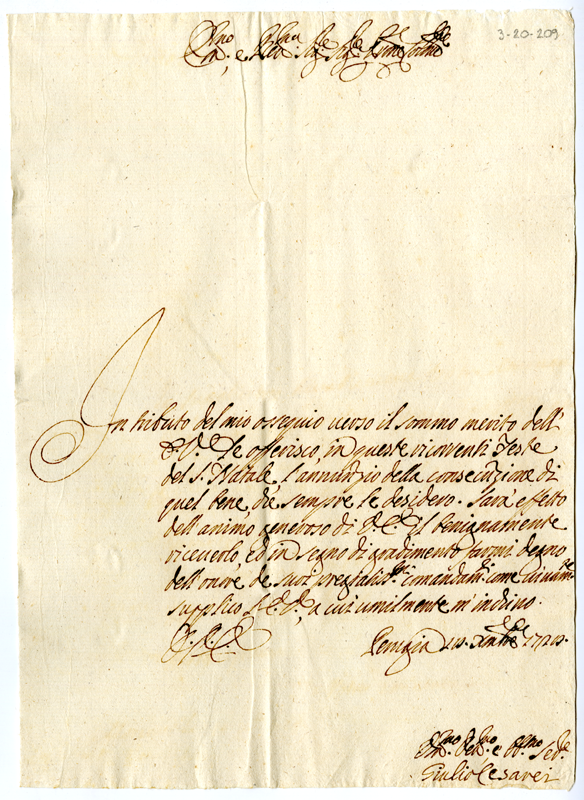 3-20-209
Em.mo e Rev.mo Sig.re Sig.re P.rone Col.mo
In tributo del mio ossequio verso il sommo merito dell'
E. V. Le offerisco, in queste ricorrenti Feste
del S. Natale, l'annunzio della consecuzione di
quel bene, che sempre Le desidero. Sarà effetto
dell'animo generoso di E. V. il benignamente
riceverlo, ed in segno di gradimento farmi degno
dell'onore de suoi pregiatis.mi comandam.ti come vivam.te
supplico l'E. V., a cui umilmente m'inchino.
Perugia
Um.mo Dev.mo e Obl.mo Ser.re
Giulio Cesarei